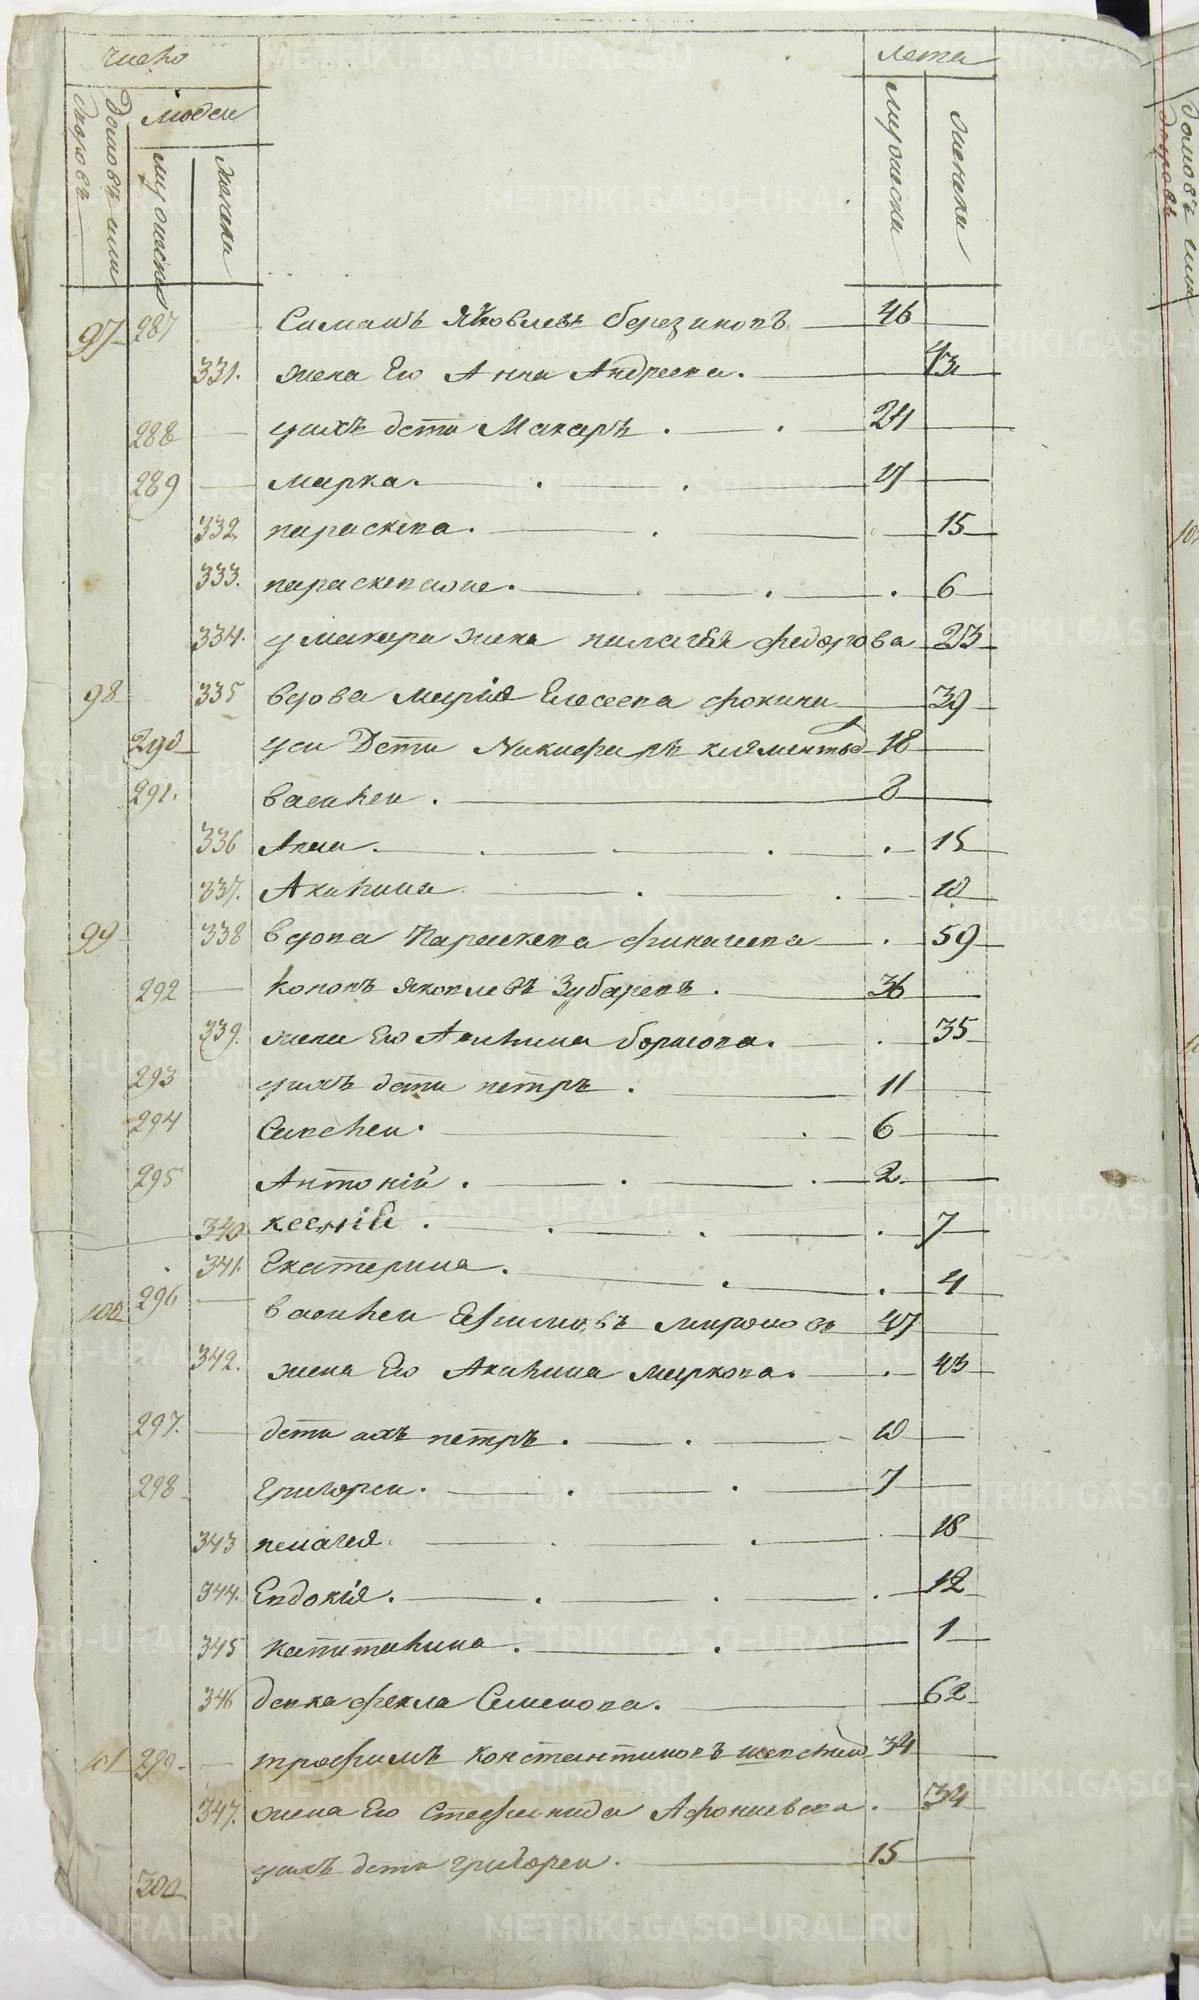 число лета
домовъ или дворовъ людей мужеска женска мужеска женска
97 287 Симаонъ Яковлевъ березинопъ 46
331. жена Ею Анна Андреева. 43
288 унихъ дети Макаръ . 24
289 марка. 4
332 параскепа. 15
333. параскепаюже. 6
334. умакара жена палагея федорова 23
98 335 вдова Марія Елесеепа фокина 39
290 уси Дети Никифаръ клементьев 18
291. василеи . 8
336 Анна. 15
337. Акилина 10
99 338 вдопа Параскепа финагеепа 59
292 кононъ якоплевъ Зубарепъ . 36
339. жена Ею Акилина борисопа. 35
293 унихъ дети петръ . 11
294 Савелеи. 6
295 Антоній . 2
340 ксенія . 7
341. Екатерина . 4
100 296 василеи Ефимовъ мироновъ 47
342. жена Ею Акилина маркопа. 43
297. дети ихъ петръ . 10
298 Григореи . 7
343 пелагея. 18
344. Евдокія . 12
345 капиталина . 1
346 депка фекла Семенопа. 62
101 299 трофимъ константинопъ 34
347. жена Ею Стефанида Афонасьевна . 34
300 унихъ дети григореи . 15
METRIKI.GASO-URAL.RU